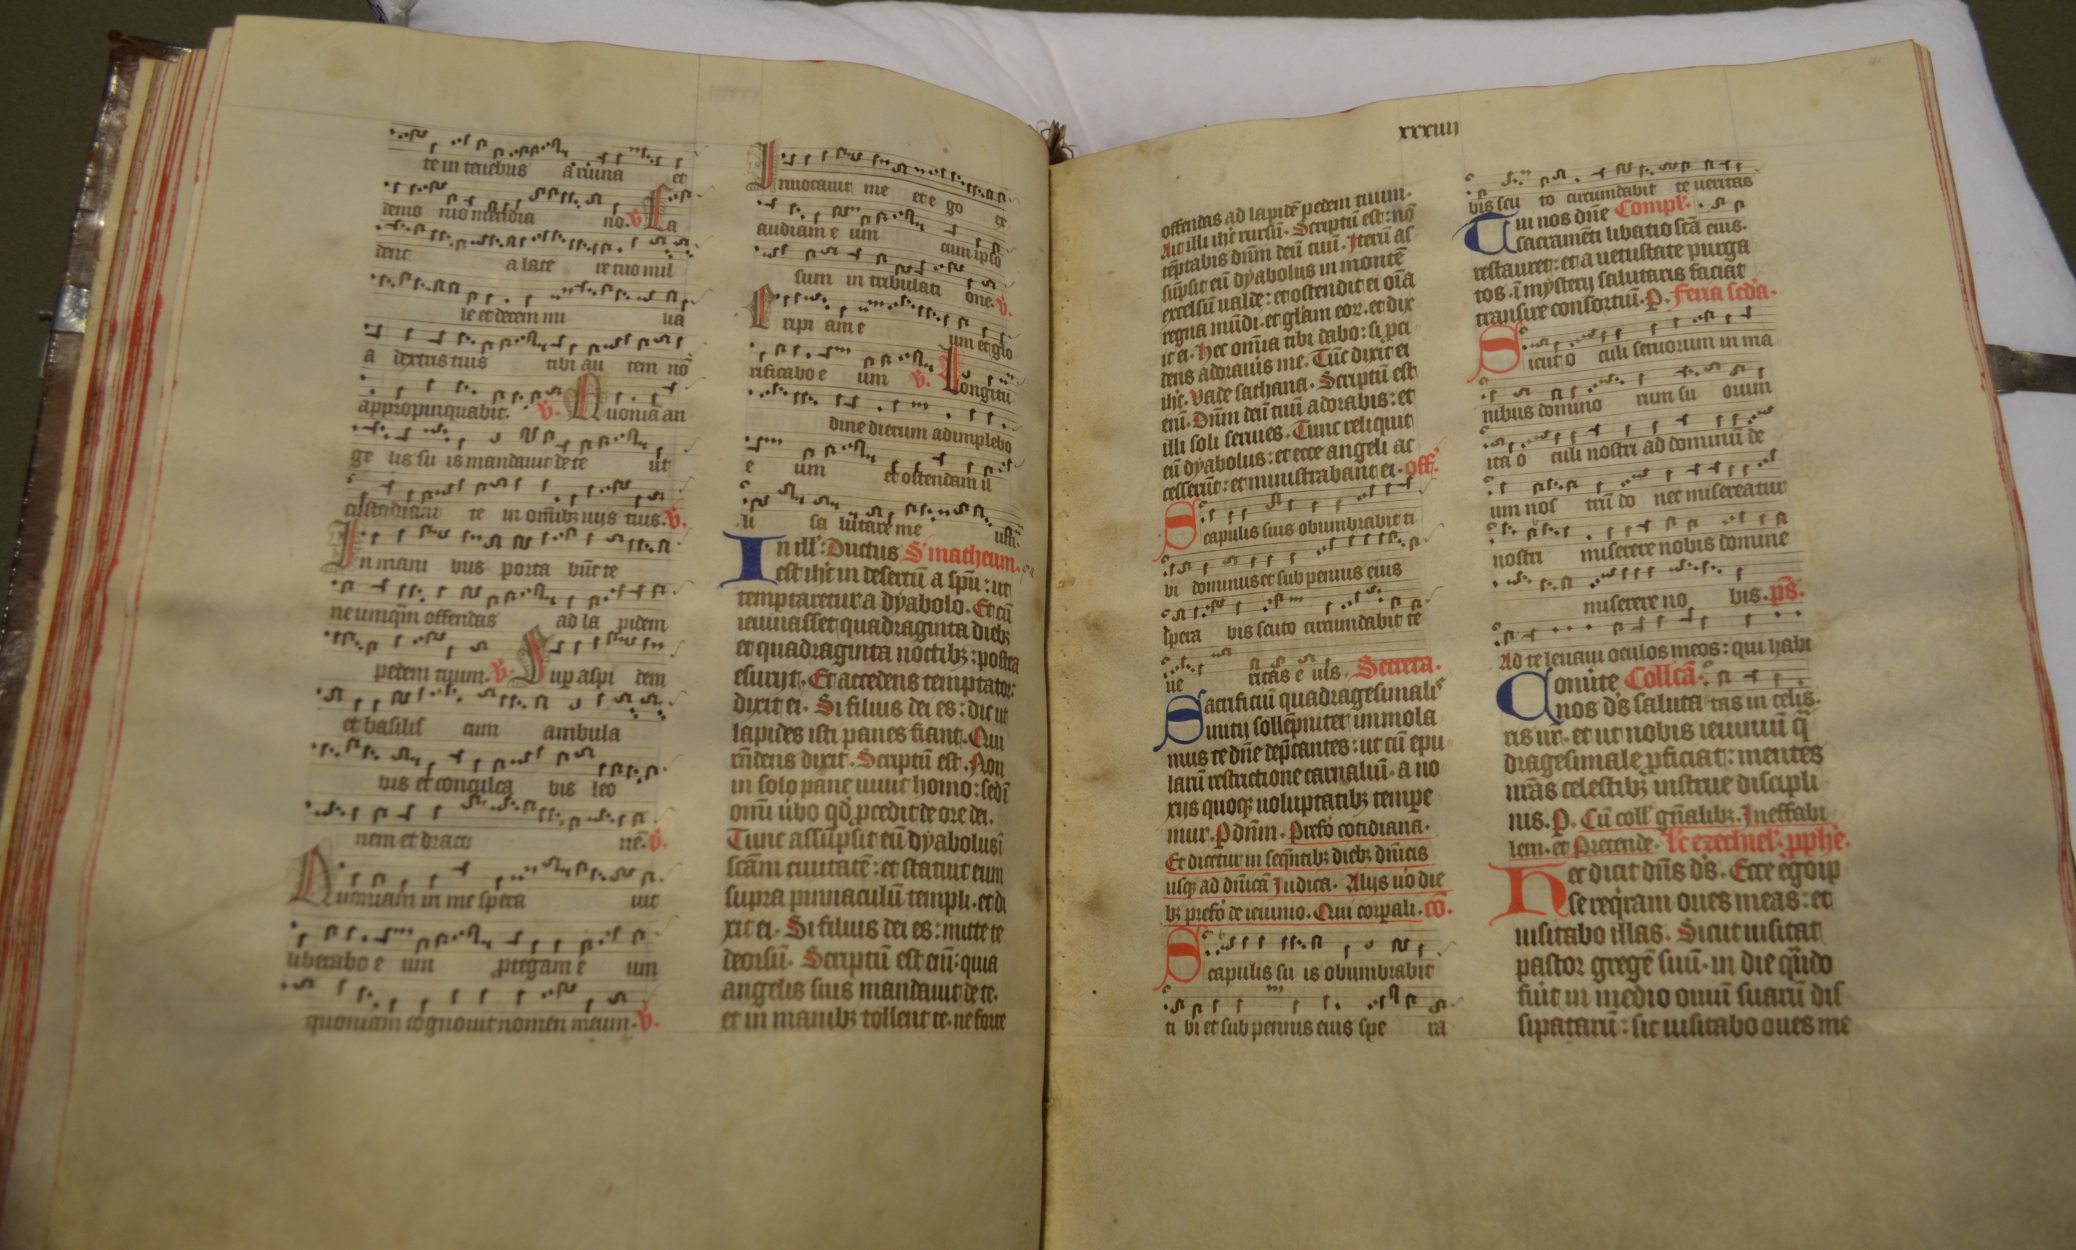 te in tenebris a ruina et
demo nio meridia no. v. Ca
dent a late re tuo mil
le et decem mi lia
a dextris tuis tibi au tem nō
appropinquabit. v. Quonia an
ge lis su is mandauit de te ut
custodiant te in om̄ibꝫ uijs tuis. v.
In mani bus porta būt te
ne umq̄m offendas ad la pidem
pedem tuum. v. Suꝑ aspi dem
et basilis cum ambula
bis et conculca bis leo
nem et draco nē. v.
Quoniam in me spera uit
liberabo e um ꝓtegam e um
quoniam cognouit nomen meum. v.
Inuocauit me et e go ex
audiam e um cum ipso
sum in tribulati one. v.
Eripi am e um et glo
rificabo e um v. Longitu
dine dierum adimplebo
e um et ostendam il
li sa lutare me
In ill'. Ductus S' matheum.
est ih̄c in desertū a sp̄u: ut
temptaretur a dyabolo. Et cū
ieiunasset quadraginta diebꝫ
et quadraginta noctibꝫ: postea
esurijt. Et accedens temptator:
dixit ei. Si filius dei es: dic ut
lapides isti panes fiant. Qui
rn̄dens dixit. Scriptū est. Non
in solo pane uiuit homo: sed ī
omī ūbo qd̄ ꝓcedit de ore dei.
Tunc assūpsit eū dyabolus ī
scām ciuitatē: et statuit eum
supra pinnaculū templi. et di
xit ei. Si filius dei es: mitte te
deorsū. Scriptū est eni̅: quia
angelis suis mandauit de te.
et in manibꝫ tollent te. ne forte
xxxiiij
offendas ad lapidē pedem tuum.
Ait illi ih̄c rursū. Scriptū est: nō
tēptabis dn̄m deū tuū. Iterū as
sūpsit eū dyabolus in montē
excelsū ualde: et ostendit ei oīa
regna mūdi. et gl̄am eoꝝ. et dix
it ei. Hec omīa tibi dabo: si ꝓci
dens adoraueris me. Tūc dixit ei
ih̄c. Vade sathana. Scriptū est
enī. Dn̄m deū tuū adorabis: et
illi soli seruies. Tunc reliquit
eū dyabolus: et ecce angeli ac
cesserūt: et ministrabant ei. off.
Scapulis suis obumbrabit ti
bi dominus et sub pennis eius
spera bis scuto circumdabit te
ue ritas e ius. Secreta.
Sacrificiū quadragesimalis
inicij sollēpniter immola
mus te dn̄e dep̄cantes: ut cū epu
larū restrictione carnaliū. a no
xijs quoqꝫ uoluptatibꝫ tempe
mur. P dn̄m. Prefō cotidiana.
Et dicetur in seq̄ntibꝫ diebꝫ dn̄icis
usqꝫ ad dn̄icā Iudica. Alijs u̅o die
bꝫ prefō de ieiunio. Qui corꝑali. cō.
Scapulis su is obumbrabit
ti bi et sub pennis eius spe ra
bis scu to circumdabit te ueritas
Tui nos dn̄e Compl'.
sacramēti libatio scā eius.
restauret: et a uetustate purga
tos. ī mysterij salutaris faciat
transire consortiū. P. Feria sc̄da.
Sicut o culi seruorum in ma
nibus domino rum su orum
ita o culi nostri ad dominū de
um nos trū do nec misereatur
nostri miserere nobis domine
miserere no bis. ps̄.
Ad te leuaui oculos meos: qui habi
Conūte Collcā.
nos d̄s saluta tas in celis.
ris nr̄. et ut nobis ieiuniū q̄
dragesimale ꝓficiat: mentes
nr̄as celestibꝫ instrue discipli
nis. P. Cū coll' gn̄alibꝫ. Ineffabi
lem. et Pretende. Lc̄ ezechiel'. ꝓphe.
Hec dicit dn̄s d̄s. Ecce ego ip
se req̄ram oues meas: et
uisitabo illas. Sicut uisitat
pastor gregē suū. in die qn̄do
fūit in medio ouiū suarū dis
sipatarū: sic uisitabo oues me